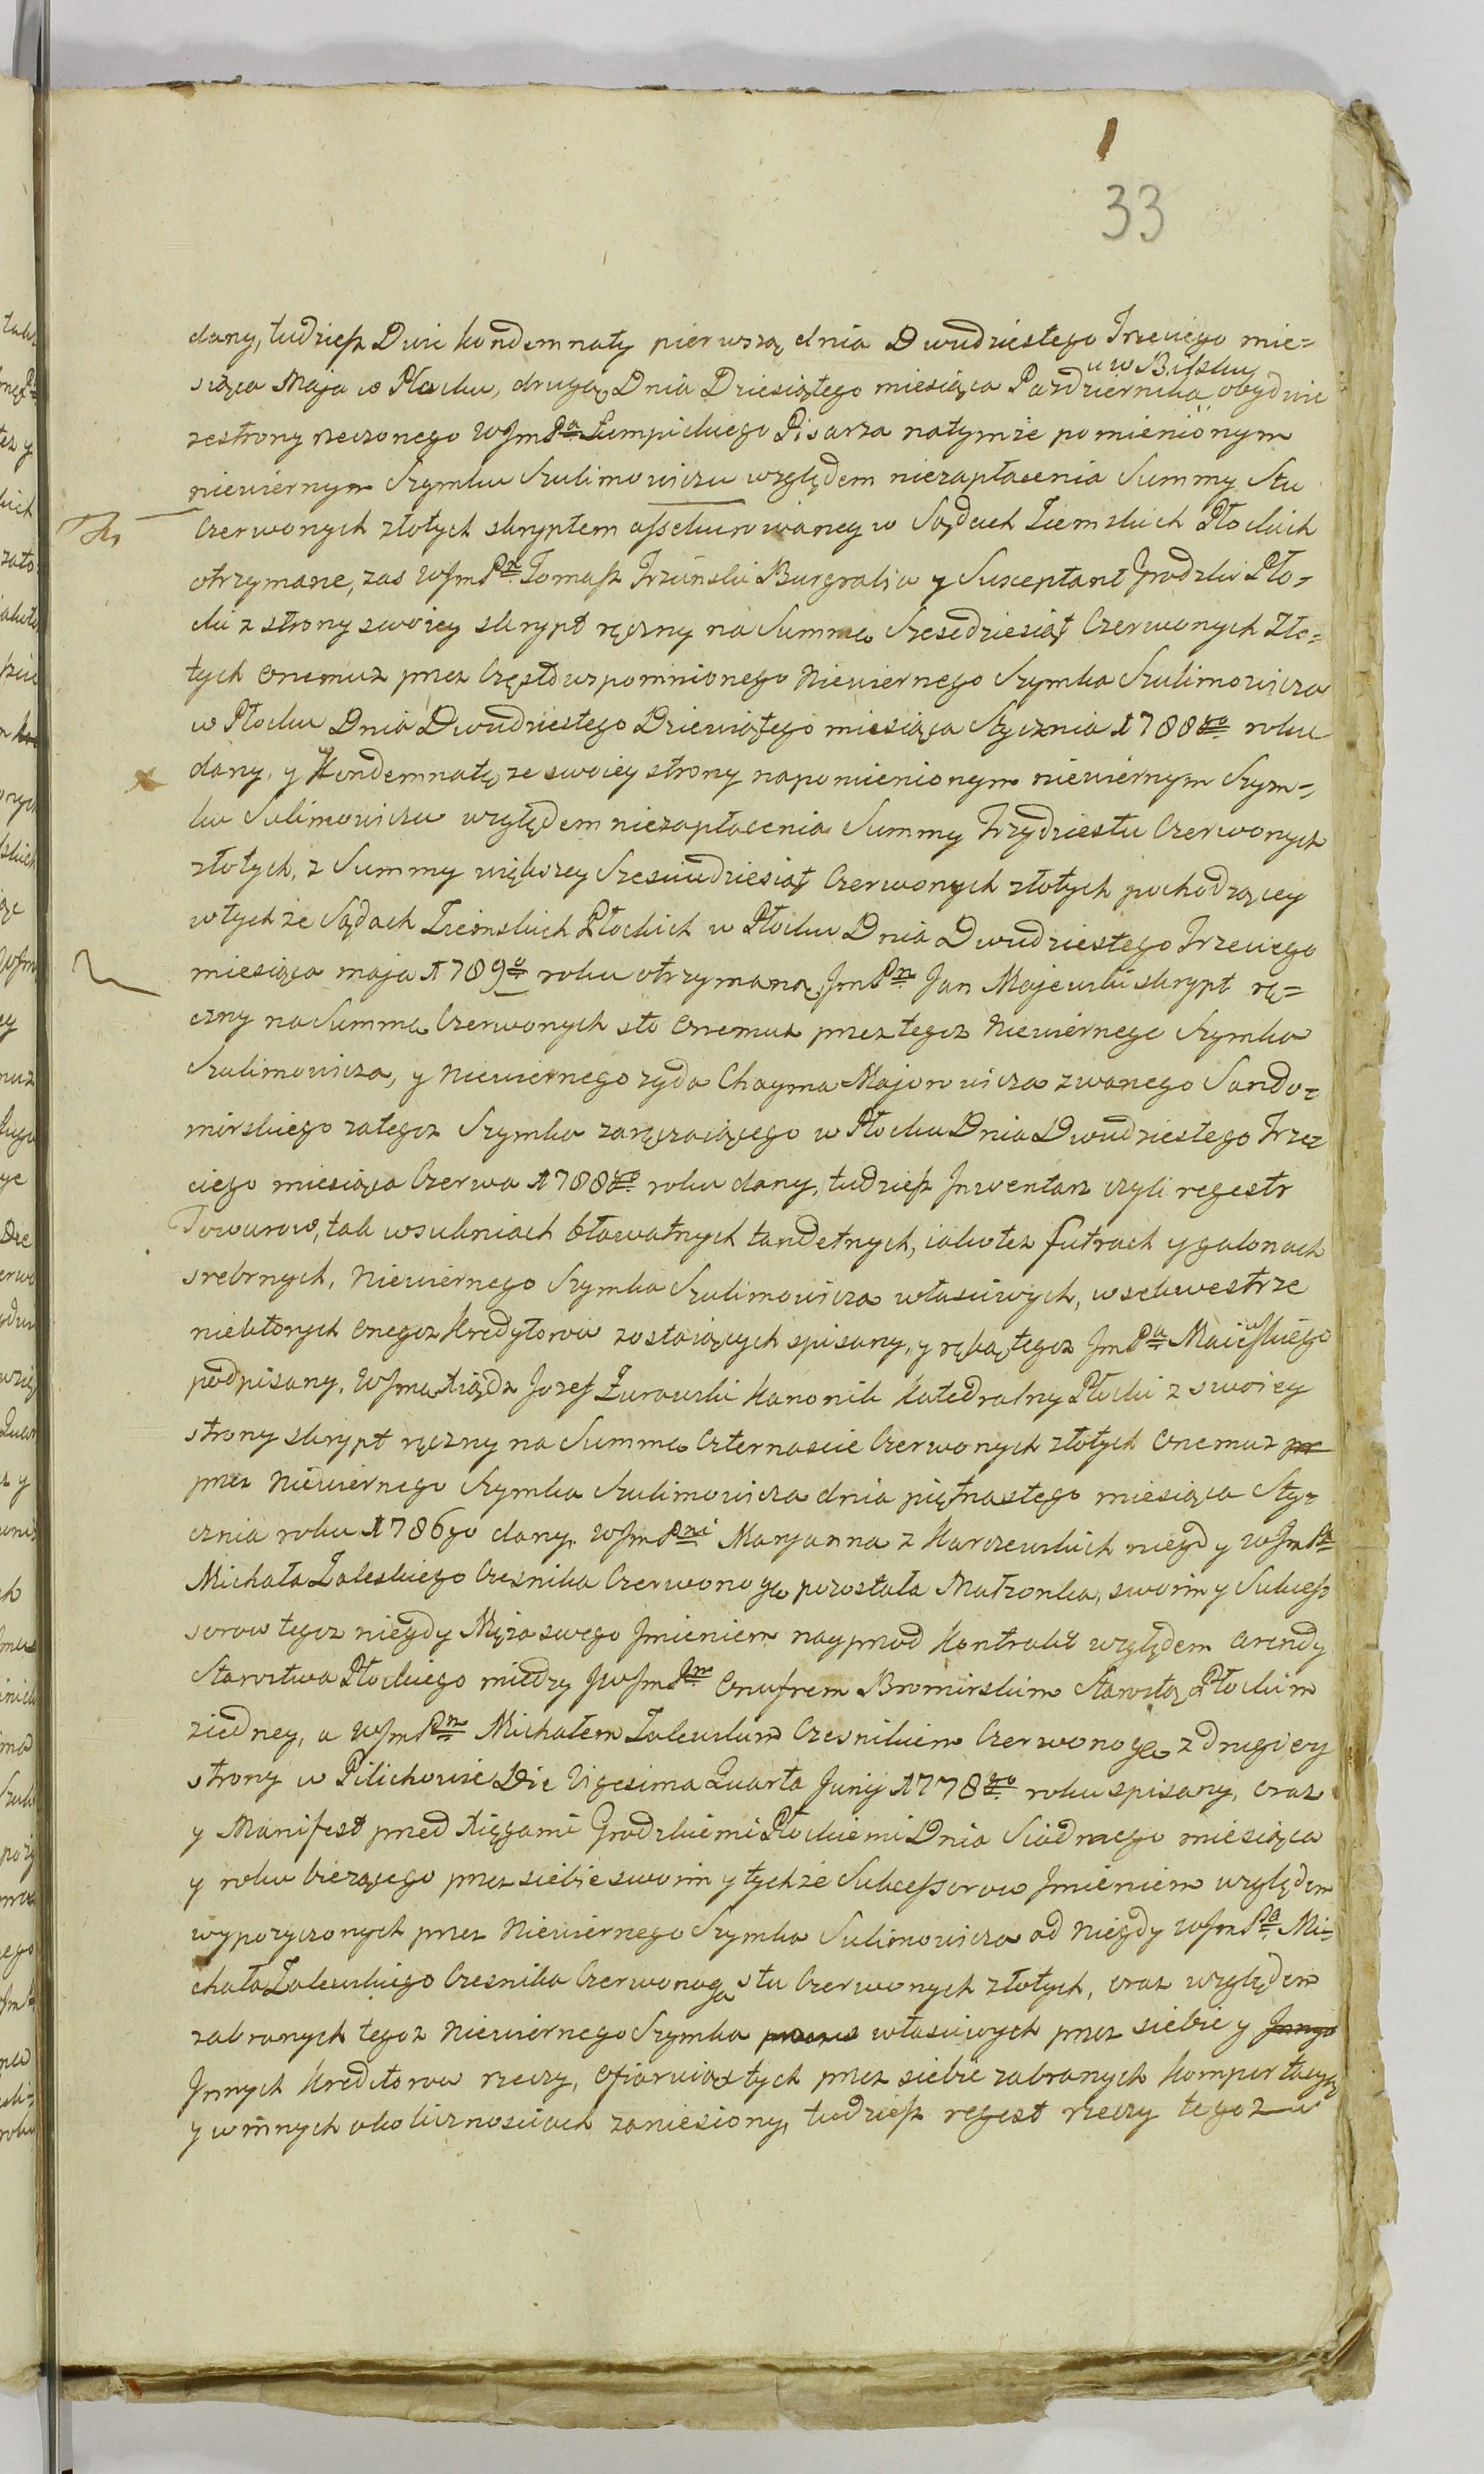 33
dany, tudzieß Dwie kondemnaty pierwszą dnia Dwudziestego Trzeciego mie=
siąca Maja w Płocku, drugą Dnia Dziesiątego miesiąca Pazdziernika u w Bilsku obydwie
ze strony rzeczonego WJmPa Lempickiego Pisarza natymże pomienionym
niewiernym Szymku Szulimowiczu względem niezapłacenia Summy Stu
Czerwonych złotych skryptem aſsekurowaney w Sądach Ziemskich Płockich
otrzymane, zas WJmPn Tomaß Trzciński Burgrabia y Susceptant Grodzki Pło=
cki z strony swoiey skrypt ręczny na Summę Szescdziesiąt Czerwonych Zło=
tych onemuz przez Częstowzpomnionego Niewiernego Szymka Szulimowicza
w Płocku Dnia Dwudziestego Dziewiątego miesiąca Stycznia 1788go roku
dany, y Kondemnatę ze swoiey strony napomienionym niewiernym Szym=
ku Sulimowiczu względem niezapłacenia Summy Trzydziestu Czerwonych
złotych, z Summy większey Szesciudziesiąt Czerwonych złotych pochodzącey
w tychze Sądach Ziemskich Płockich w Płocku Dnia Dwudziestego Trzeciego
miesiąca maja 1789o roku otrzymaną, JmPn Jan Majewski skrypt rę=
czny na Summę Czerwonych sto Onemuz przez tegoz Niewiernego Szymka
Szulimowicza, y Niewiernego zyda Chayma Majorowicza zwanego Sando=
mirskiego zategoz Szymka zaręczaiącego w Płocku Dnia Dwudziestego Trze
ciego miesiąca Czerwa 1788go roku dany, tudzieß Inwentarz czyli regestr
Towarow, tak w sukniach bławatnych tandetnych, iakotez futrach y galonach
srebrnych, Niewiernego Szymka Szulimowicza własciwych, w sekwestrze
niektorych onegoz Kredytorow zostaiących spisany, y ręką tegoz JmPa Maiewskiego
podpisany. WJmc Xiądz Jozef Zurawski Kanonik Katedralny Płocki z swoiey
strony skrypt ręczny na Summę Czternascie Czerwonych złotych Onemuz pr
przez Niewiernego Szymka Szulimowicza dnia piętnastego miesiąca Sty=
cznia roku 1786go dany. WJmPni Maryanna z Karczewskich niegdy WJmPa
Michała Zaleskiego Czesnika Czerwonogo pozostała Małzonka, swoim y Sukceß
sorow tegoz niegdy Męza swego Jmieniem nayprzod Kontrakt względem arendy
Starostwa Płockiego między JWJmPm Onufrem Bromirskim Starostą Płockim
ziedney, a WJmPm Michałem Zalewskim Czesnikiem Czerwonogo z drugiey
strony w Pilichowie Die Vigesima Quarta Junij 1778go roku spisany, oraz
y Manifest przed Xięgami Grodzkiemi Płockiemi Dnia Siodmego miesiąca
y roku biezącego przez siebie swoim y tychze Sukceſsorow Jmieniem względem
wypozyczonych przez Niewiernego Szymka Sulimowicza od niegdy WJmPa Mi=
chała Zalewskiego Czesnika Czerwonogo stu Czerwonych złotych, oraz względem
zabranych tegoz Niewiernego Szymka własciwych przez siebie y Jnnyo
Jnnych Kreditorow rzeczy, ofiaruiąc tych przez siebie zabranych komportacyą
y w innych okolicznosciach zaniesiony, tudzieß regest rzeczy tegoz